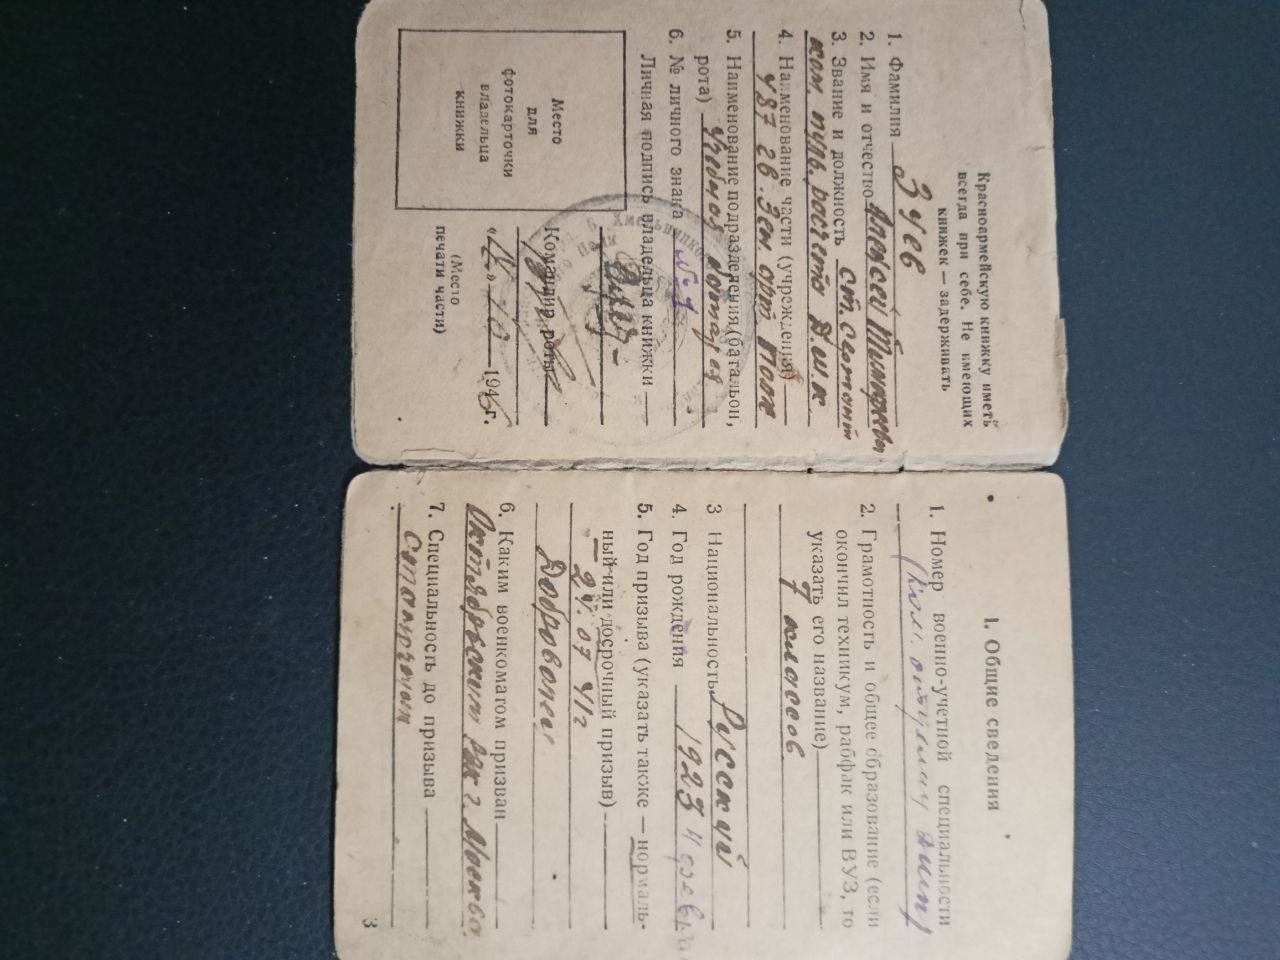 Красноармейскую книжку иметь
всегда при себе. Не имеющих
книжек — задерживать
1. Фамилия Зуев
2. Имя и отчество Алексей
3. Звание и должность ст. сержант
ком. пульрасчета
4. Наименование части (учреждения)
497 гв. Зен. арт. Полк
5. Наименование подразделения (батальон,
рота) Учебная батарея
6. № личного знака № 1
Личная подпись владельца книжки
Место
для
фотокарточки
владельца
книжки
Командир роты
194 г.
(Место
печати части)
I. Общие сведения
1. Номер военно-учетной специальности
2. Грамотность и общее образование (если
окончил техникум, рабфак или ВУЗ, то
указать его название)
7 классов
3 Национальность Русский
4. Год рождения 1923 4 февраля
5. Год призыва (указать также — нормаль-
ный или досрочный призыв)
24.07 41 г
Доброволец
6. Каким военкоматом призван
Октябрьским РВК г. Москвы.
7. Специальность до призыва
3